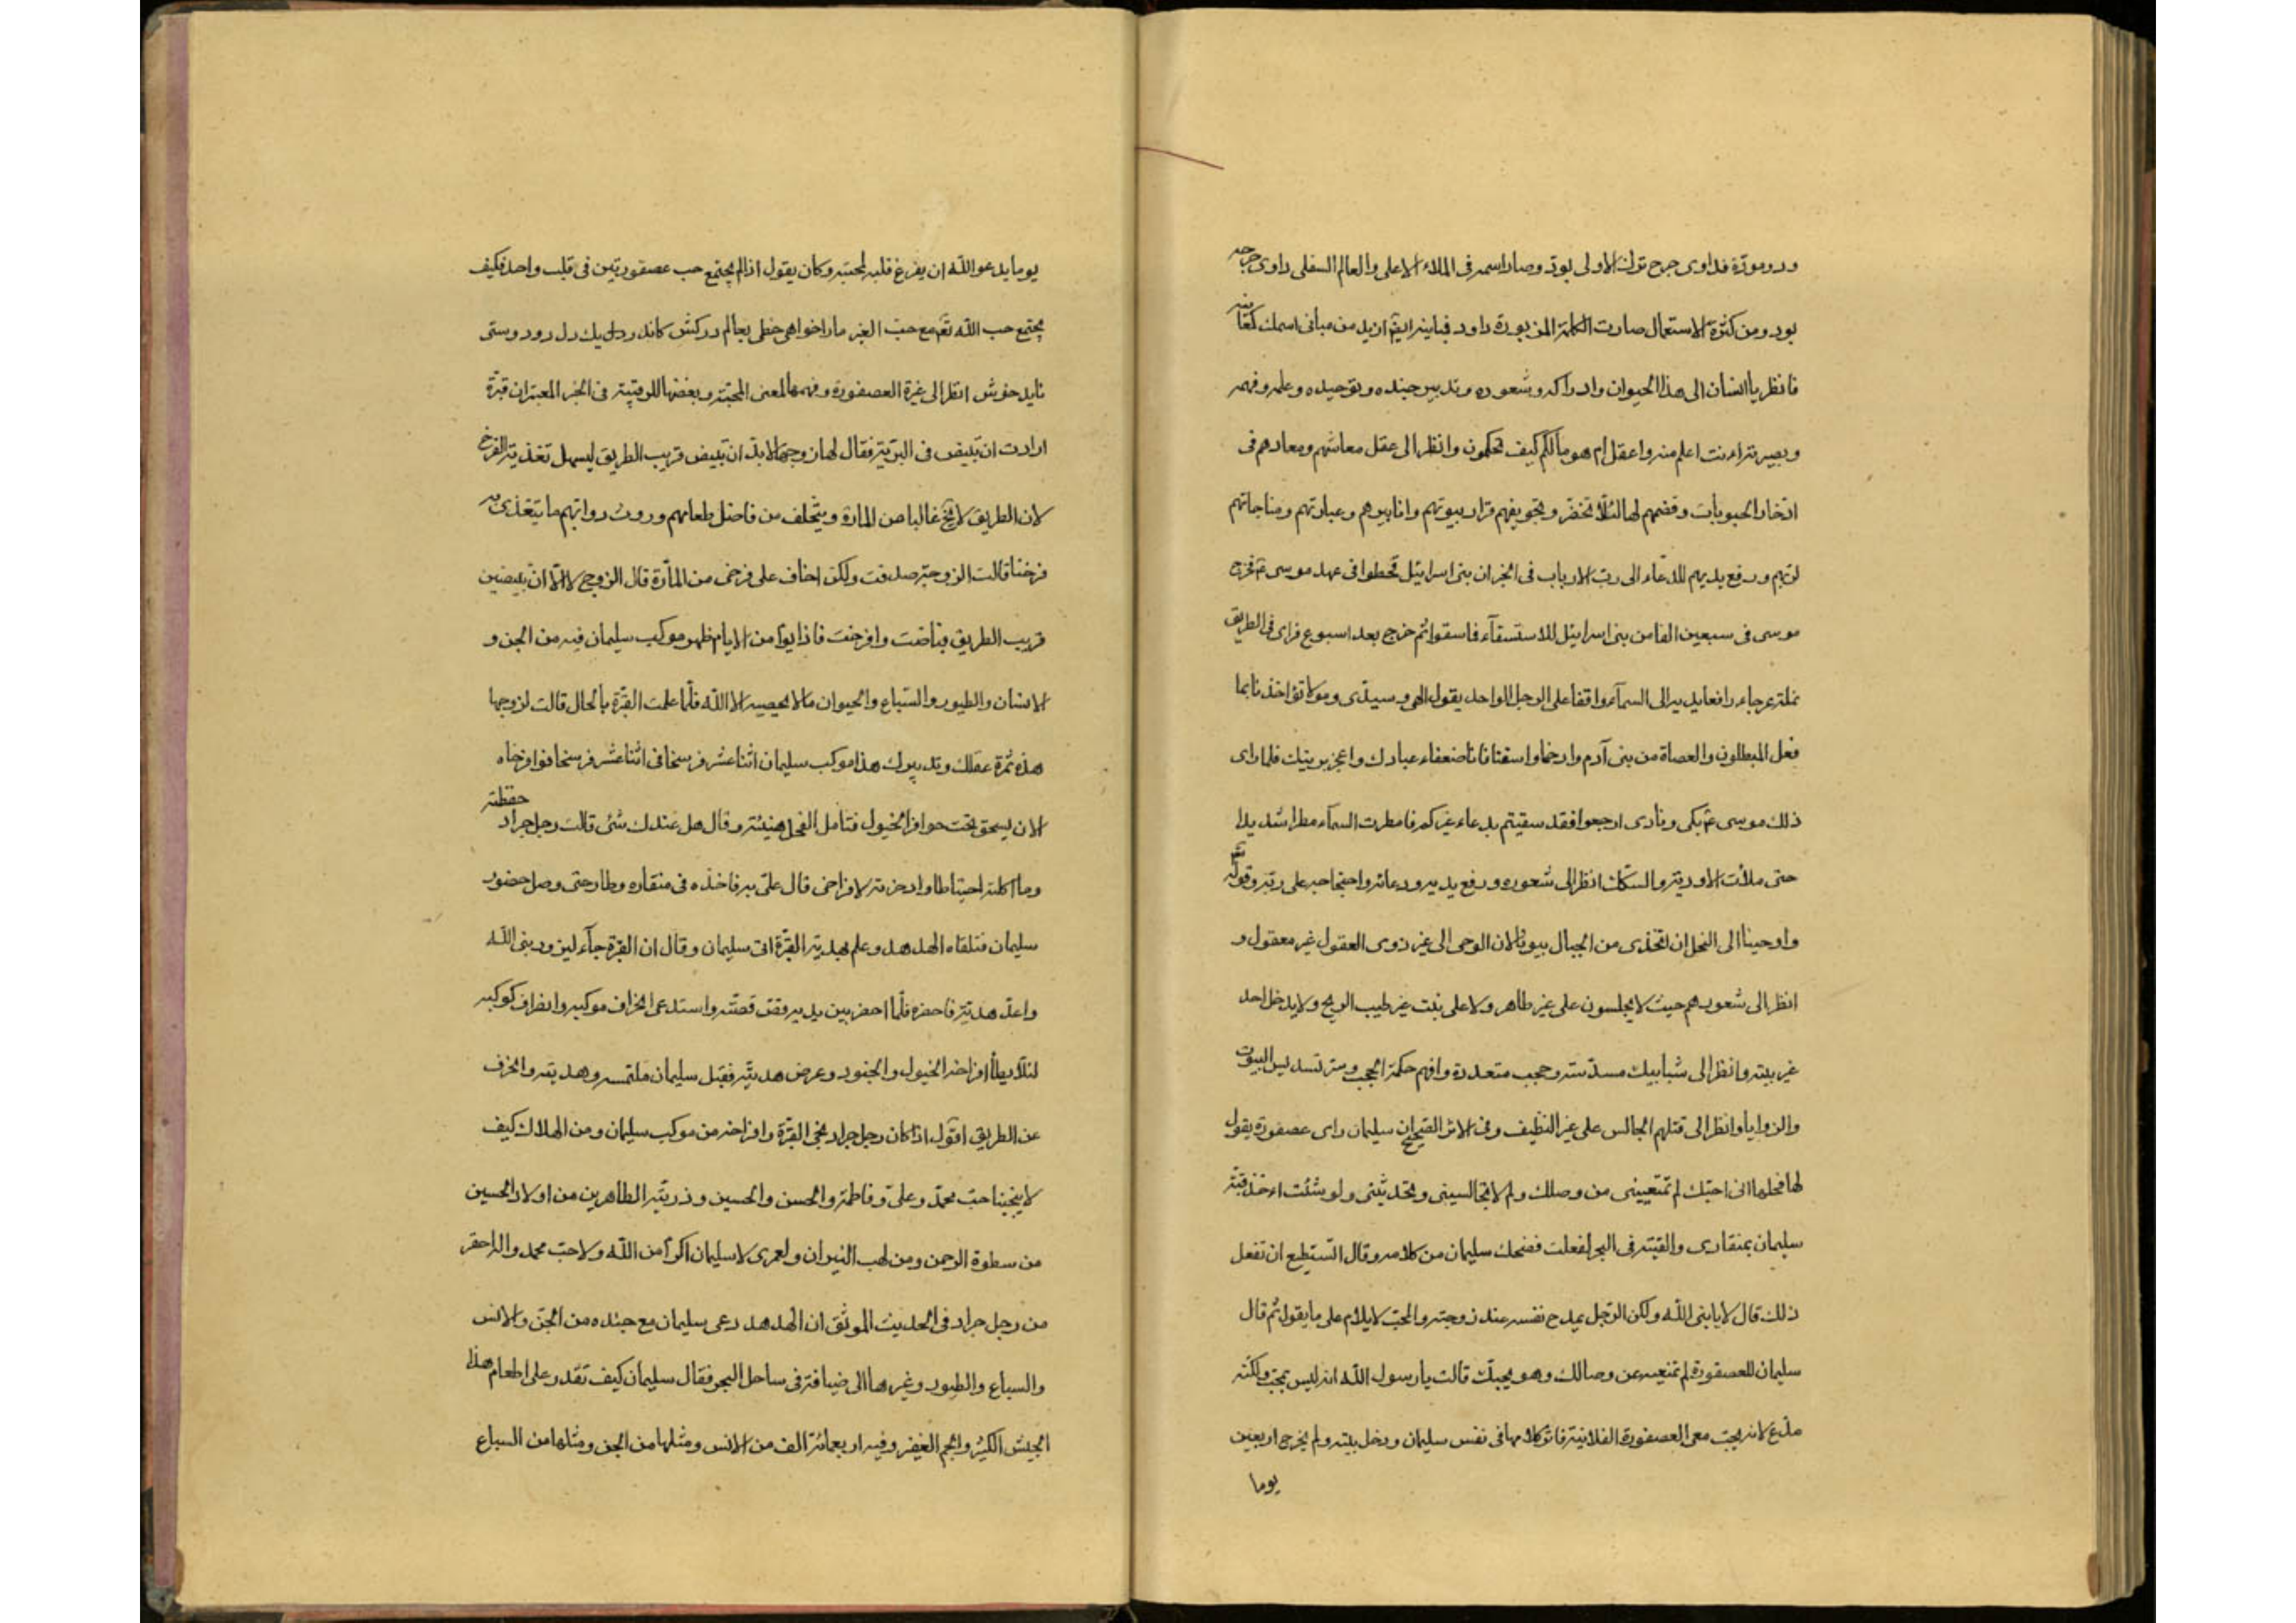 ود و مودّة فداوى جرح ترك الاولى بودّ وصار اسمه فى الملاء الاعلى والعالم السفلى داوى جرحه
بود ومن كثرة الاستعمال صارت الكلمة المزبورة داود فباينه ايضا ازيد من مبانى اسمك كمعانيه
فانظر يا انسان الى هذا الحيوان وادراكه وشعوره وتدبير جنده وتوحيده وعلمه وفهمه
وبصيرته ءانت اعلم منه واعقل ام هو مالكم كيف تحكمون وانظر الى عقل معاشهم ومعادهم فى
اتخاذ الحبوبات وقضمهم لها لئلا تخضر وتجويفهم قرار بيوتهم وانابيرهم وعبادتهم ومناجاتهم
لربهم ورفع يديهم للدعاء الى رب الارباب فى الخبر ان بنى اسرائيل قحطوا فى عهد موسى ع فخرج
موسى فى سبعين الفا من بنى اسرائيل للاستسقاء فاسقوا ثم خرج بعد اسبوع فراى فى الطريق
نملة عرجاء رافعا يديه الى السماء واقفا على الرجل الواحد يقول الهى وسيدى ومولاى لا تؤاخذنا بما
فعل المبطلون والعصاة من بنى آدم وارحمنا واسقنا فانا ضعفاء عبادك واعجز بريتك فلما راى
ذلك موسى ع بكى ونادى ارجعوا فقد سقيتم بدعاء غيركم فامطرت السماء مطرا شديدا
حتى ملأت الاودية والسكك انظر الى شعوره ورفع يديه ودعائه واحتجاجه على ربه وقوله تع
واوحينا الى النحل ان اتخذى من الجبال بيوتا لان الوحى الى غير ذوى العقول غير معقول و
انظر الى شعورهم حيث لا يجلسون على غير طاهر ولا على نبت غير طيب الريح ولا يدخل احد
غير بيته وانظر الى شبابيك مسدسة وحجب متعددة وافهم حكمة الحجب وسر تسديس البيوت
والزوايا وانظر الى قتلهم الجالس على غير النظيف وفى الاثر الصحيح ان سليمان راى عصفورة يقول
لها فحلها انى احبك لم تمنعيننى من وصلك ولم لا تجالسينى وتحدثينى ولو شئت اءخذ قبة
سليمان بمنقارى والقيته فى البحر لفعلت فضحك سليمان من كلامه وقال اتستطيع ان تفعل
ذلك قال لا يا نبى الله ولكن الرجل يمدح نفسه عند زوجته والمحب لا يلام على ما يقول ثم قال
سليمان للعصفورة لم تمنعيه عن وصالك وهو يحبك قالت يا رسول الله انه ليس بمحب ولكنه
مدّع لانه يحب معى العصفورة الفلانية فاثر كلامها فى نفس سليمان ودخل بيته ولم يخرج اربعين
يوما
يوما يدعو الله ان يفرغ قلبه لمحبته وكان يقول اذا لم يجتمع حب عصفورتين فى قلب واحد فكيف
يجتمع حب الله تع مع حب الغير مارا خواهى خطى بعالم دركش كاندر دل يك دل دو دوستى
نايد خوش انظر الى غيرة العصفورة وفهمها لمعنى المحبة وبغضها للرقيبة فى الخبر المعتبر ان قبرة
ارادت ان تبيض فى البرية فقال لها زوجها لا بد ان تبيض قريب الطريق ليسهل تغذية الفرخ
لان الطريق لا يخ غالبا من المارة ويتخلف من فاضل طعامهم وروث دوابهم ما يتغذى به
فرخنا قالت الزوجة صدقت ولكن اخاف على فرخى من المارة قال الزوج لا الّا ان تبيضين
قريب الطريق فباضت وافرخت فاذا يوما من الايام ظهر موكب سليمان فيه من الجن و
الانسان والطيور والسباع والحيوان مالا يحصيه الا الله فلما علمت القبرة بالحال قالت لزوجها
هذه ثمرة عقلك وتدبيرك هذا موكب سليمان اثنا عشر فرسخا فى اثنا عشر فرسخا فوا فرخاه
الان يسحق تحت حوافر الخيول فتامل الفحل هنيئة وقال هل عندك شئ قالت رجل جراد حفظته
وما اكلته احتياطا وادخرته لافراخى قال علىّ به فاخذه فى منقاره وطار حتى وصل حضور
سليمان فتلقاه الهدهد وعلم بهدية القبرة اتى سليمان وقال ان القبرة جاء ليزور نبى الله
واعد هدية فاحضره فلما احضر بين يديه وقص قصته واستدعى انحراف موكبه وانصراف كوكبه
لئلا يطأ افراخه الخيول والجنود وعرض هديته فقبل سليمان ملتمسه وهديته وانحرف
عن الطريق اقول اذا كان رجل جراد نجى القبرة وافراخه من موكب سليمان ومن الهلاك كيف
لا ينجينا حب محمد وعلى وفاطمة والحسن والحسين وذريته الطاهرين من اولاد الحسين
من سطوة الرحمن ومن لهب النيران ولعمرى لا سليمان اكرم من الله ولا حب محمد واله احقر
من رجل جراد فى الحديث الموثق ان الهدهد دعى سليمان مع جنده من الجن والانس
والسباع والطيور وغيرها الى ضيافة فى ساحل البحر فقال سليمان كيف تقدر على اطعام هذا
الجيش الكثير والجم الغفير وفيه اربعمائة الف من الانس ومثلها من الجن ومثلها من السباع